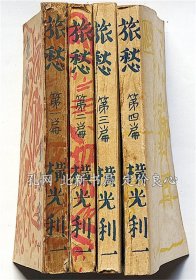 旅愁
第一篇
横光利一
旅愁
第二篇
横光利一
旅愁
第三篇
横光利一
旅愁
第四篇
横光利一